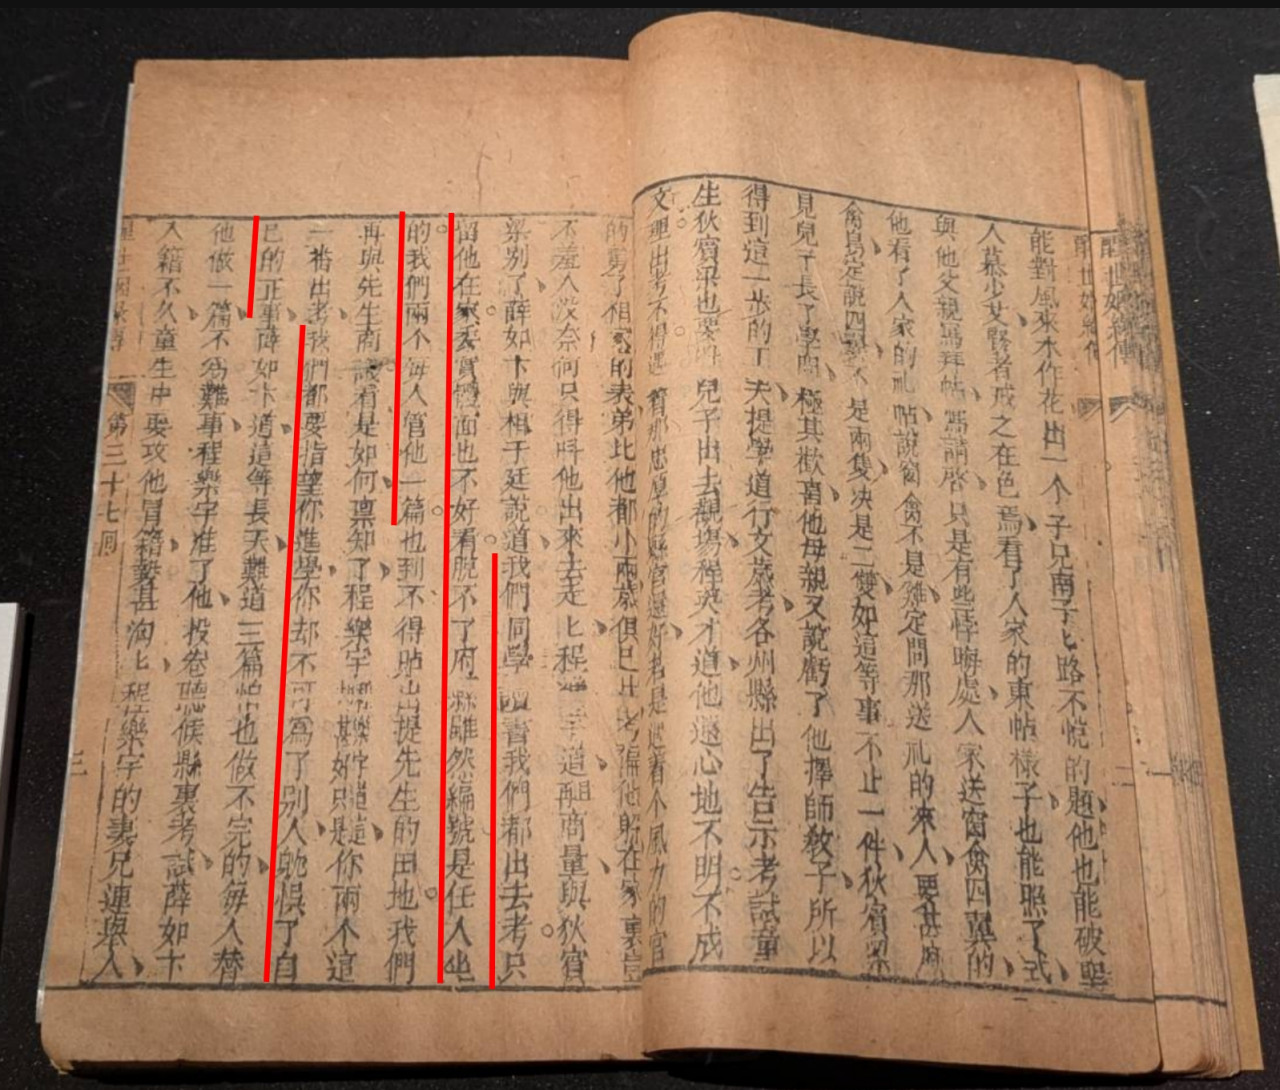 醒世姻緣傳
能對風來水作花出一个子兄南子七路不悅的題他也能破聖
人慕少艾賢者戒之在色焉看了人家的柬帖樣子也能照了式
與他父親寫拜帖寫請啓只是有些悖晦處人家送窗禽四翼的
他看了人家的礼帖說窗禽不是雞定問那送礼的來人要甚麽
禽鳥定說四翼不是兩隻决是二雙如這等事不止一件狄賓梁
見兒子長了學問極其歡喜他母親又說虧了他擇師敎子所以
得到這一步的工夫提學道行文歲考各州縣出了告示考試童
生狄賓梁也要呌兒子出去觀塲程英才道他還心地不明不成
文理出考不得遇着那忠厚的縣官還好若是遇着个風力的官
的寫了相家的表弟比他都小兩歲俱已出考偏他躱在家裏豈
不羞人沒奈何只得呌他出來去走上程樂宇道再商量與狄賓
梁别了薛如卞與相于廷說道我們同學讀書我們都出去考只
留他在家委實體面也不好看脫不了府縣雖然編號是任人坐
的我們兩个每人管他一篇也到不得貼出提先生的田地我們
再與先生商議看是如何禀知了程樂宇程樂宇道這甚好只是你兩个這
一番出考我們都要指望你進學你却不可爲了别人躭悞了自
已的正事薛如卞道這等長天難道三篇怕也做不完的每人替
他做一篇不爲難事程樂宇准了他投卷聽候縣裏考試薛如卞
入籍不久童生中要攻他冒籍甚洶上程樂宇的妻兄連擧人
醒世姻緣傳 第三十七回 三